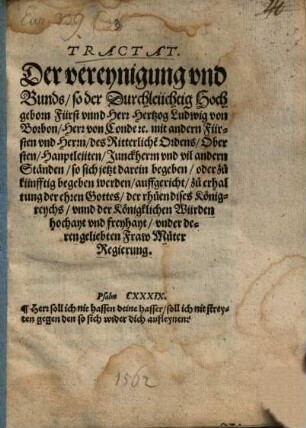 TRACTAT.
Der vereynigung vnd
Bunds / so der Durchleüchtig Hoch
geborn Fürst vnnd Herr Hertzog Ludwig von
Borbon / Herr von Conde ꝛc. mit andern Für-
sten vnd Herrn / des Ritterlichẽ Ordens / Ober
sten / Hauptleüten / Junckherrn vnd vil andern
Ständen / so sich jetzt darein begeben / oder zů
künfftig begeben werden / auffgericht / zů erhal
tung der ehren Gottes / der rhůen dises König-
reychs / vnnd der Königklichen Würden
hochayt vnd freyhayt / vnder de-
ren geliebten Fraw Můter
Regierung.
Psalm CXXXIX.
¶ Herr soll ich nie hassen deine hasser / soll ich nit strey-
ten gegen den so sich wider dich aufleynen?
1562